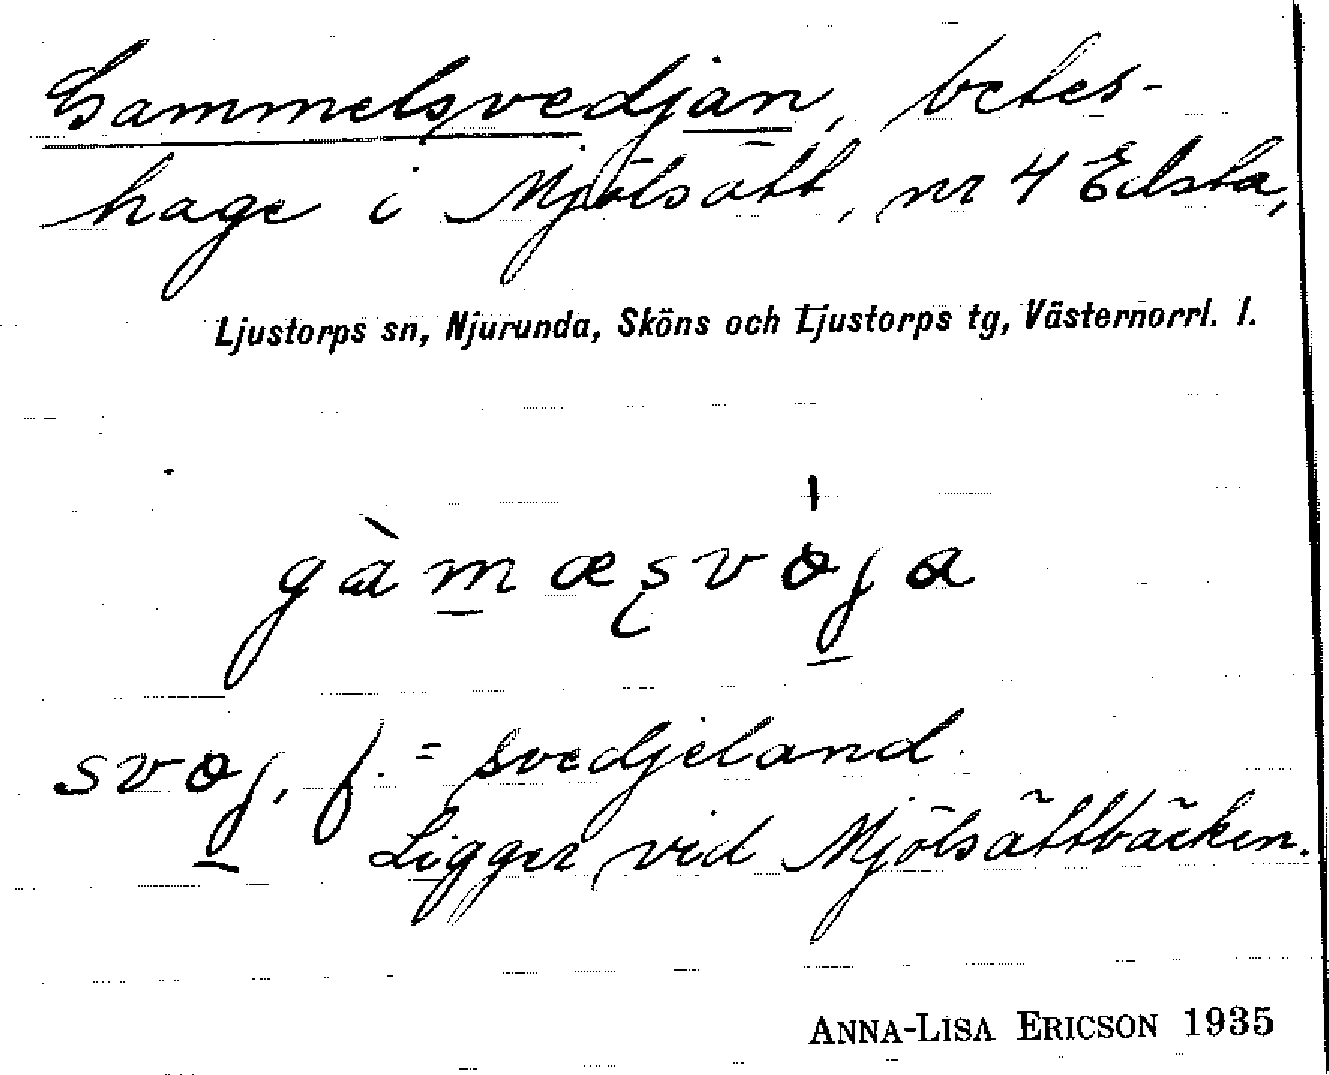 Gammelsvedjan, betes-
hage i Mjölsätt, nr 4 Edsta,
Ljustorps sn, Njurunda, Sköns och Ljustorps tg, Västernorrl. l.
gàmæsvòja
svoj, f. = svedjeland.
Ligger vid Mjölsättbäcken.
ANNA-LISA ERICSON 1935